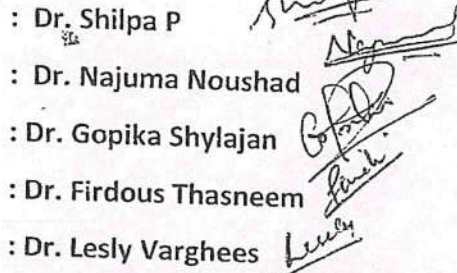 : Dr. Shilpa P
: Dr. Najuma Noushad
: Dr. Gopika Shylajan
: Dr. Firdous Thasneem
: Dr. Lesly Varghees Lesly